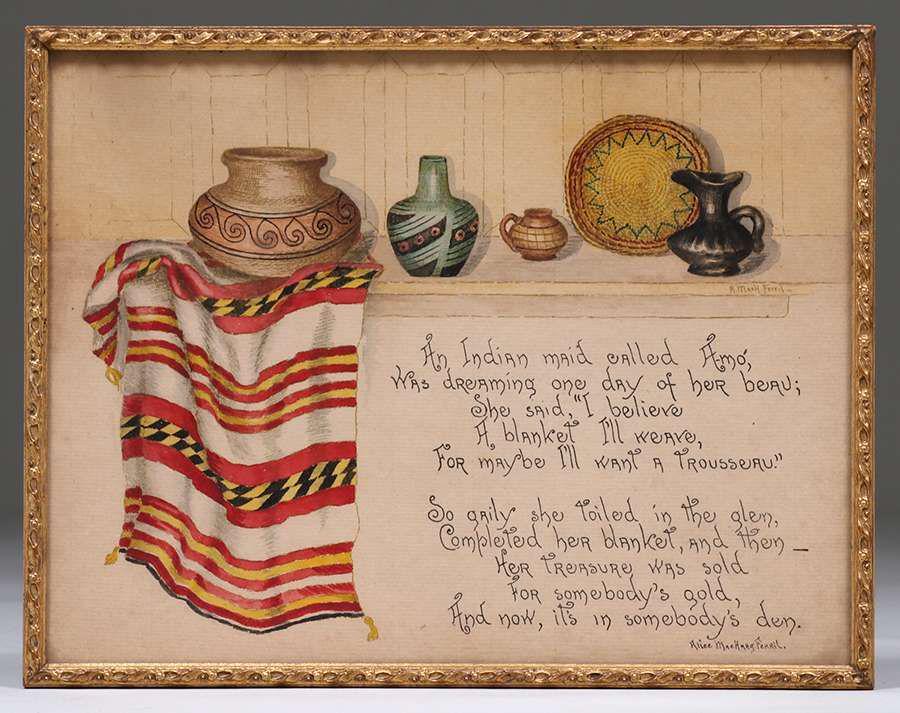 A. MacH. Ferril
An Indian maid called Amo,
Was dreaming one day of her beau;
She said, "I believe
A blanket I'll weave,
For maybe I'll want a trousseau."
So gaily she toiled in the glen,
Completed her blanket, and then —
Her treasure was sold
For somebody's gold,
And now, it's in somebody's den.
Alice MacHarg Ferril.